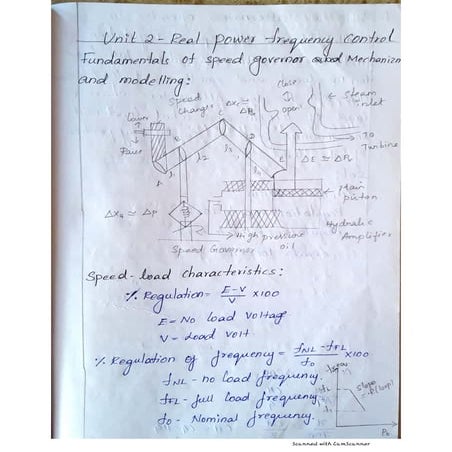 Unit 2 - Real power - frequency control
Fundamentals of speed governor and Mechanizm
and modelling:
Speed
Changer
close
open
Steam
inlet
Lower
Raise
TO
Turbine
Main
piston
Hydralic
Amplifier
High pressure
oil
Speed Governor
Speed - load characteristics:
% Regulation = E-V/V x100
E - No load Voltage
V - Load volt.
% Regulation of frequency = fNL - fFL/fo x100
fNL - no load frequency.
fFL - full load frequency.
fo - Nominal frequency.
slope
Scanned with CamScanner